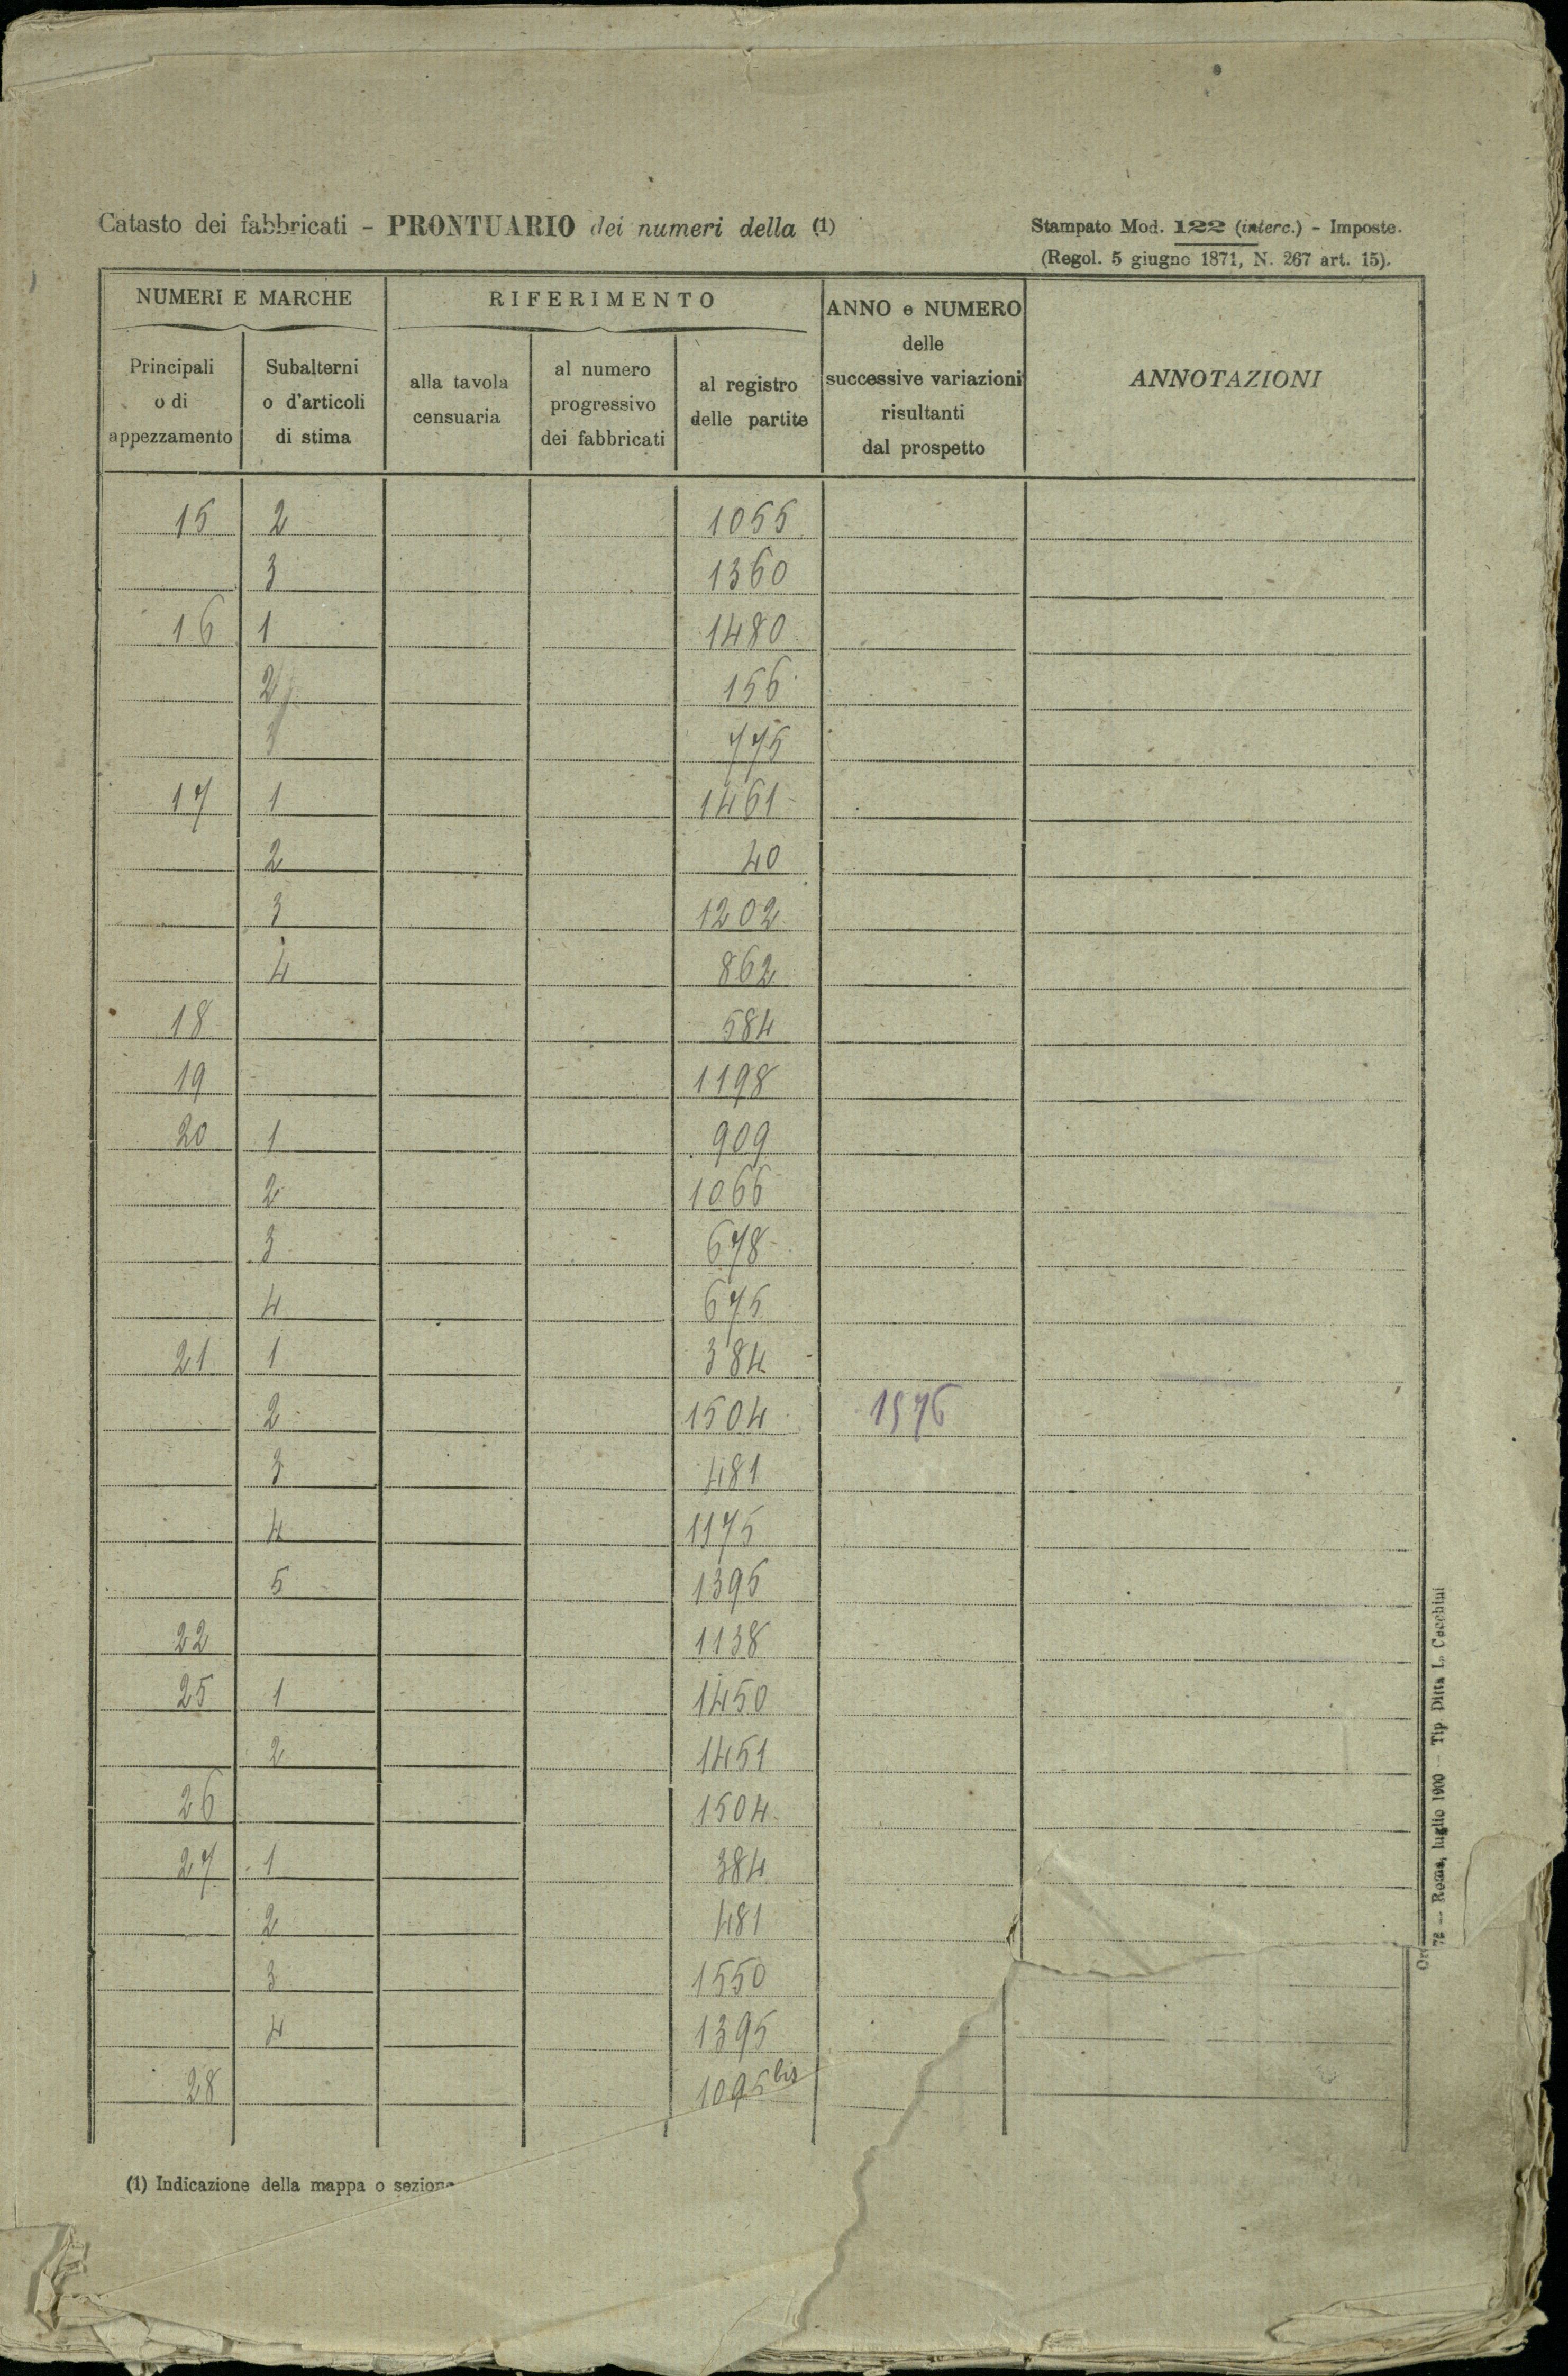 Catasto dei fabbricati - PRONTUARIO dei numeri della (1)
Stampato Mod. 122 (interc.) - Imposte.
(Regol. 5 giugno 1871, N. 267 art. 15).
NUMERI E MARCHE
RIFERIMENTO
ANNO e NUMERO
delle
successive variazioni
risultanti
dal prospetto
ANNOTAZIONI
Principali
o di
appezzamento
Subalterni
o d'articoli
di stima
alla tavola
censuaria
al numero
progressivo
dei fabbricati
al registro
delle partite
15 2 1055
3 1360
16 1 1480
2 156
3 775
17 1 1461
2 40
3 1202
4 862
18 584
19 1198
20 1 909
2 1066
3 678
4 675
21 1 384
2 1504 1576
3 481
4 1175
5 1395
22 1138
25 1 1450
2 1451
26 1504
27 1 384
2 481
3 1550
4 1395
28 1095 bis
(1) Indicazione della mappa o sezione
72 — Roma, luglio 1900 — Tip. Ditta L. Cecchini